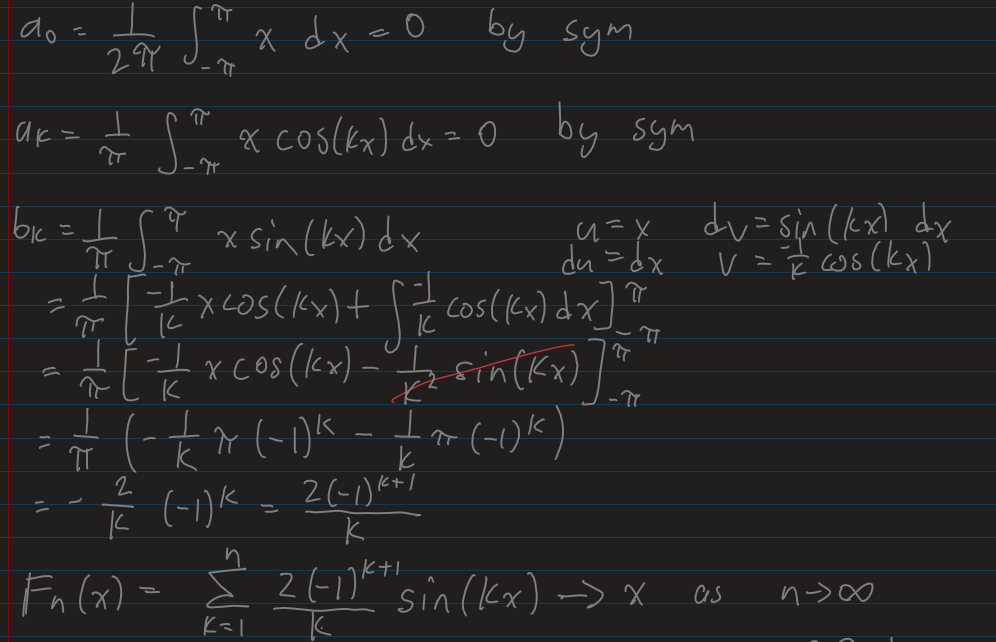 a₀ = 1/(2π) ∫_{-π}^{π} x dx = 0 by sym
aₖ = 1/π ∫_{-π}^{π} x cos(kx) dx = 0 by sym
bₖ = 1/π ∫_{-π}^{π} x sin(kx) dx u = x dv = sin(kx) dx
du = dx v = -1/k cos(kx)
= 1/π [ -1/k x cos(kx) + ∫ -1/k cos(kx) dx ]_{-π}^{π}
= 1/π [ -1/k x cos(kx) - 1/k² sin(kx) ]_{-π}^{π}
= 1/π ( - 1/k π (-1)^k - 1/k π (-1)^k )
= - 2/k (-1)^k = 2(-1)^{k+1}/k
Fₙ(x) = ∑_{k=1}^{n} 2(-1)^{k+1}/k sin(kx) → x as n→∞